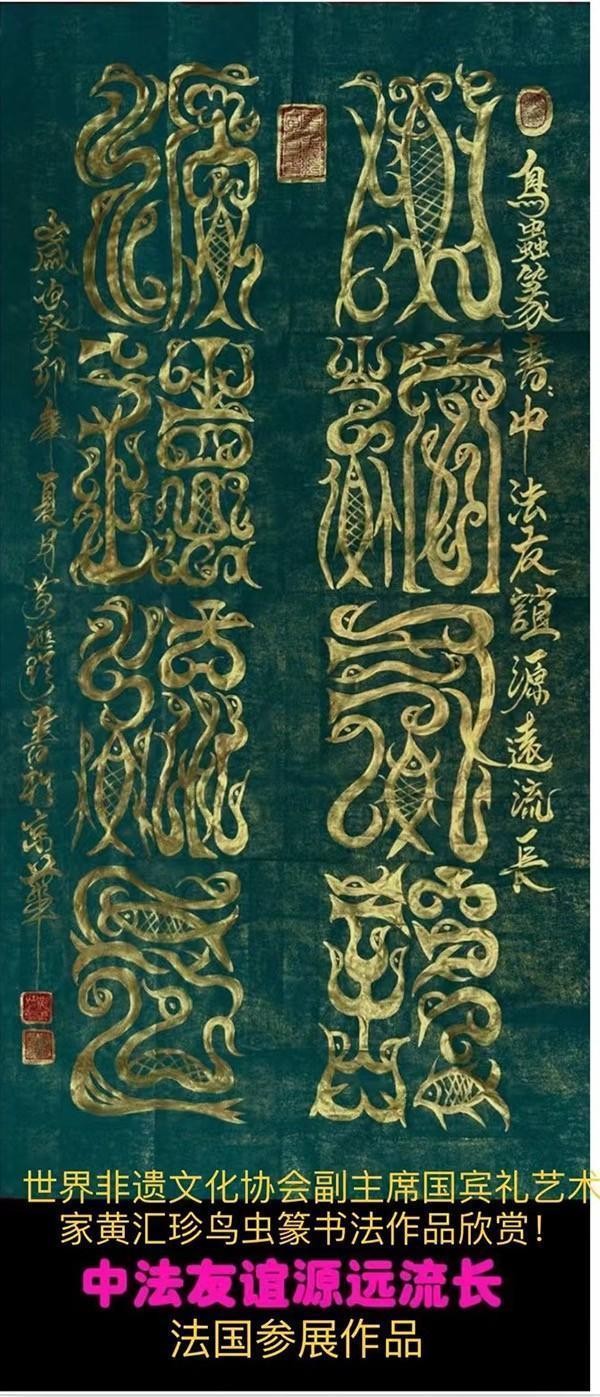 鳥蟲篆書:中法友誼源遠流長
中法友誼
源遠流長
歲次癸卯年夏月黄匯珍書於京華
世界非遗文化协会副主席国宾礼艺术
家黄汇珍鸟虫篆书法作品欣赏！
中法友谊源远流长
法国参展作品